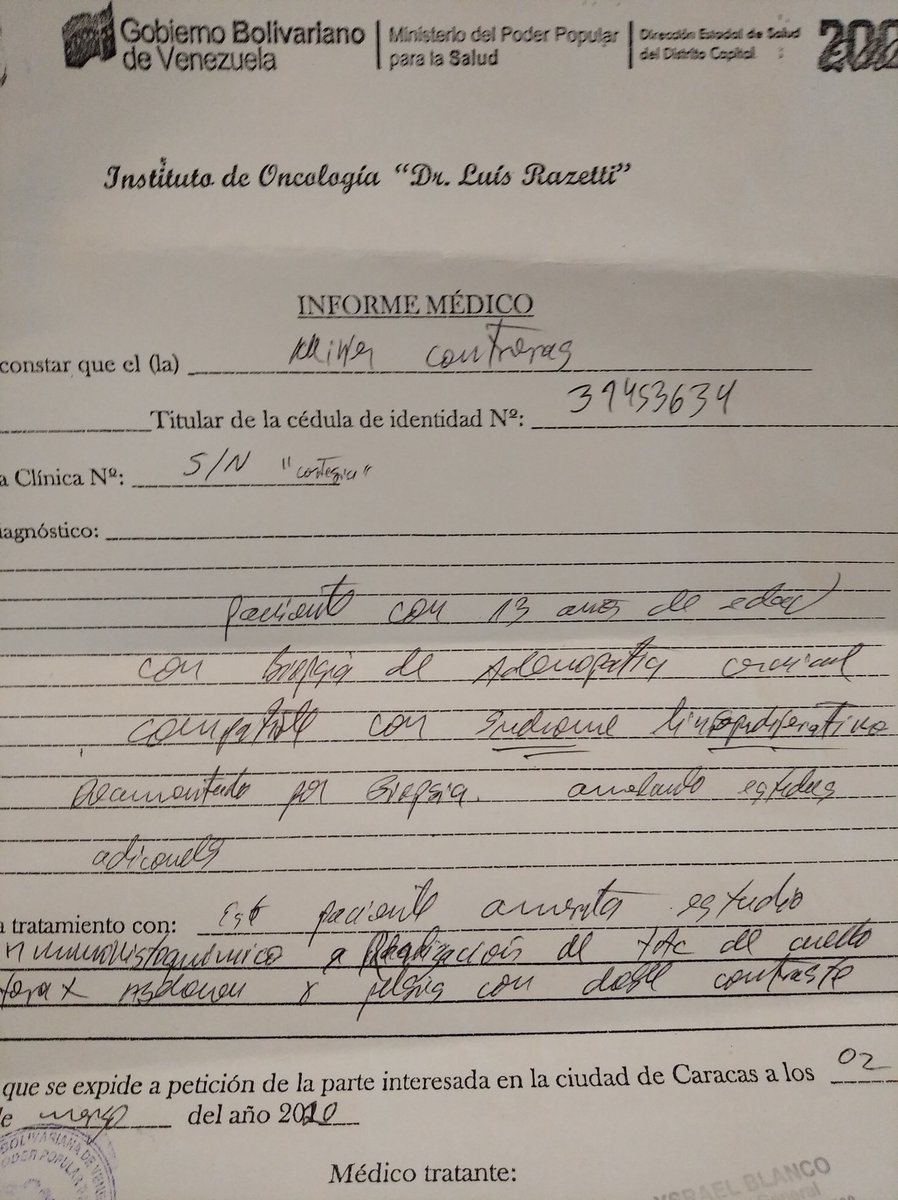 Gobierno Bolivariano de Venezuela
Ministerio del Poder Popular para la Salud
Dirección Estadal de Salud del Distrito Capital
200
Instituto de Oncología "Dr. Luís Razetti"
INFORME MÉDICO
constar que el (la) contreras
Titular de la cédula de identidad Nº: 31453634
a Clínica Nº: S/N "cortesia"
iagnóstico:
paciente con 13 anos de edad
con Biopsia de Adenopatia cervical
compatible con Sindrome linfoproliferativo
Documentado por Biopsia. ameritando estudios
adicionales
a tratamiento con: Este paciente amerita estudio
inmunohistoquimico Realización de TAC de cuello
torax Abdomen y pelvis con doble contraste
que se expide a petición de la parte interesada en la ciudad de Caracas a los 02
de marzo del año 2020
Médico tratante:
BLANCO